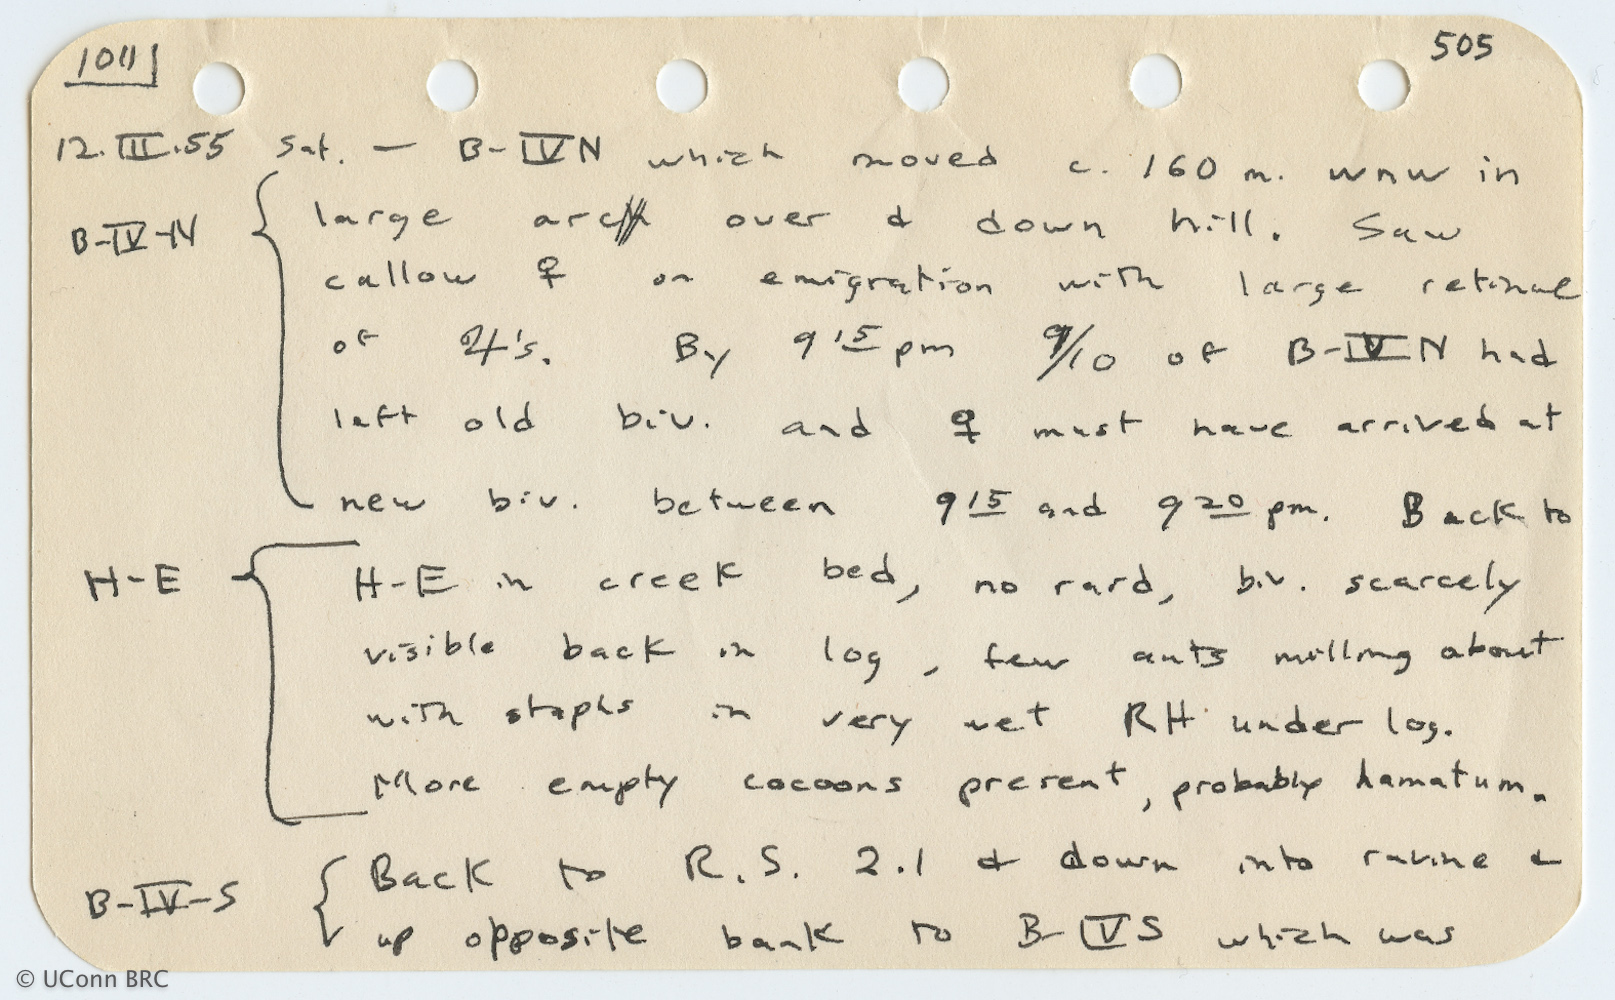 1011 505
12.III.55 Sat. — B-IVN which moved c. 160 m. wnw in
B-IV-N large arc over & down hill. Saw
callow ♀ on emigration with large retinue
of ☿'s. By 9 15 pm 9/10 of B-IVN had
left old biv. and ♀ must have arrived at
new biv. between 9 15 and 9 20 pm. Back to
H-E H-E in creek bed, no raid, biv. scarcely
visible back in log, few ants milling about
with staphs in very wet RH under log.
More empty cocoons present, probably hamatum.
B-IV-S Back to R.S. 2.1 & down into ravine &
up opposite bank to B-IVS which was
© UConn BRC